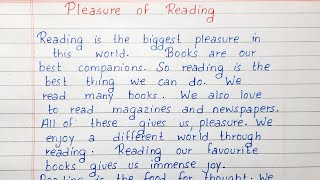 Pleasure of Reading
Reading is the biggest pleasure in
this world. Books are our
best companions. So reading is the
best thing we can do. We
read many books. We also love
to read magazines and newspapers.
All of these gives us pleasure. We
enjoy a different world through
reading. Reading our favourite
books gives us immense joy.
Reading is the food for thought. We